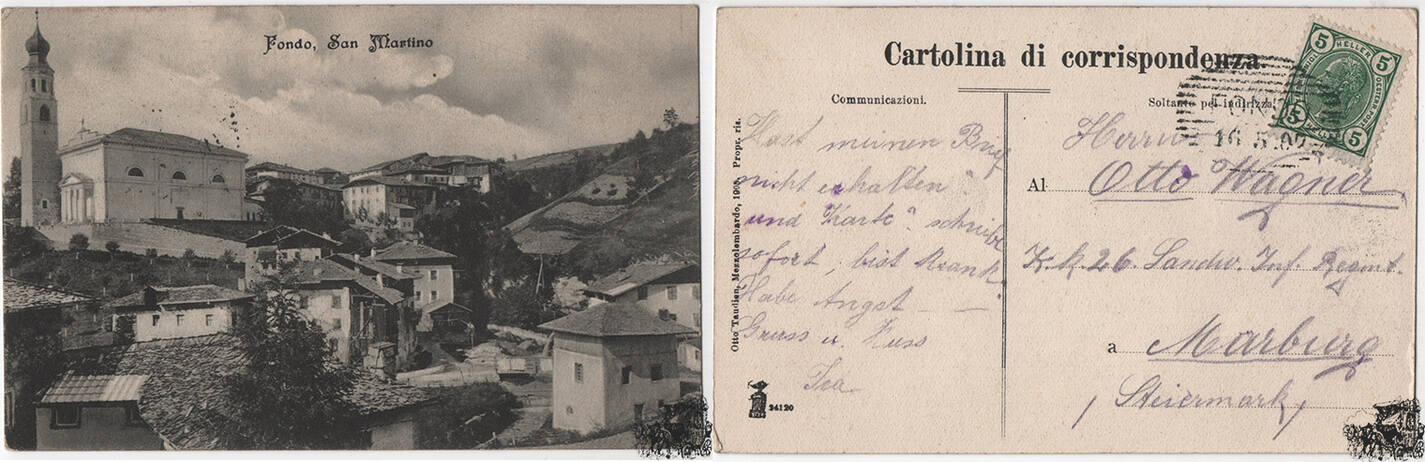 Fondo, San Martino
Cartolina di corrispondenza.
Communicazioni.
Soltanto per indirizzo.
5 HELLER 5
5 5
FON
16 5 07
Hast meinen Brief
nicht erhalten
und Karte? schreibe
sofort, bist krank,
Habe Angst — —
Gruss u. Kuss
Herrn
Al Otto Wagner
K. k. 26. Landw. Inf. Regmt.
a Marburg
Steiermark
Otto Taudien, Mezzolombardo, Propr. ris.
24120